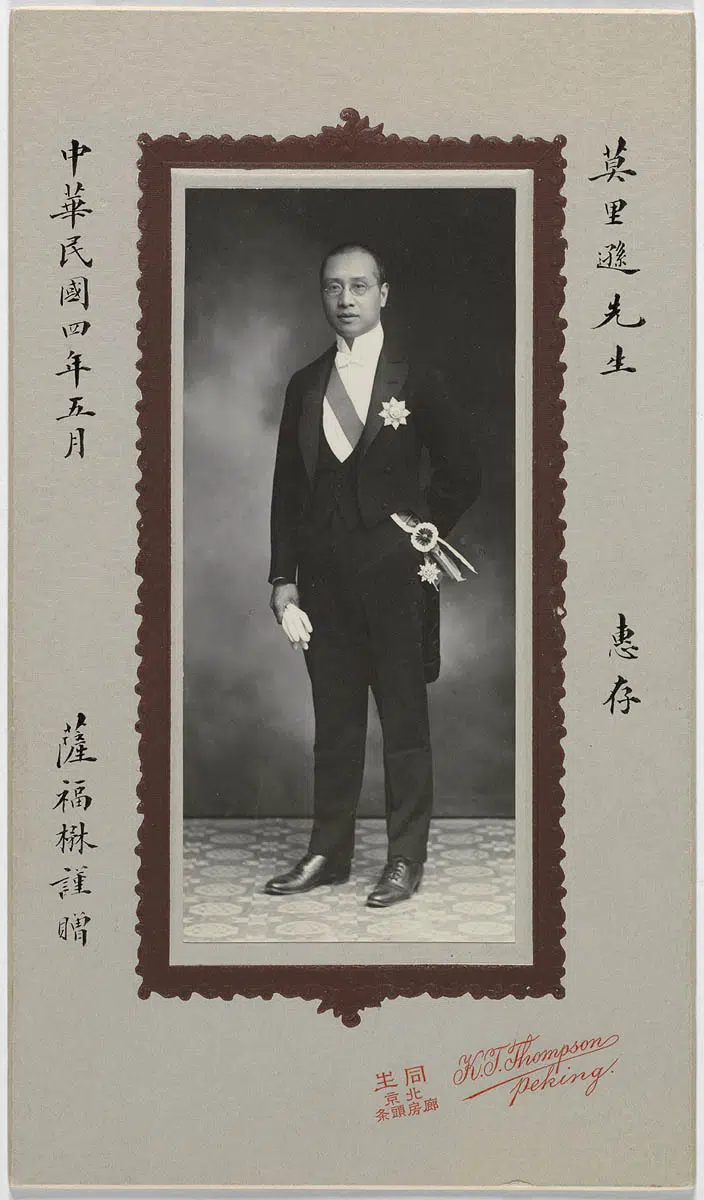 莫里遜先生
惠存
中華民國四年五月
薩福楙謹贈
同生
北京
廊房頭条
K.T. Thompson
Peking.